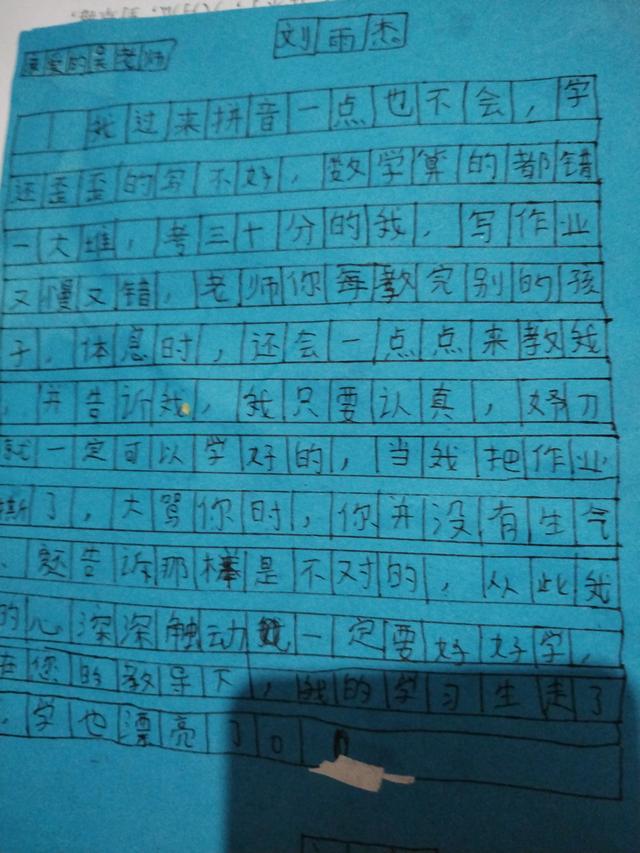 刘雨杰。
亲爱的吴老师
我过来拼音一点也不会，字
还歪歪的写不好，数学算的都错
一大堆，考三十分的我，写作业
又慢又错，老师你每教完别的孩
子，体息时，还会一点点来教我
，并告诉我，我只要认真，好刀
就一定可以学好的，当我把作业
撕了，大骂你时，你并没有生气
、还告诉那样是不对的，从此我
的心深深触动我一定要好好学，
在您的教导下，我的学习生走了
，学也漂亮了。